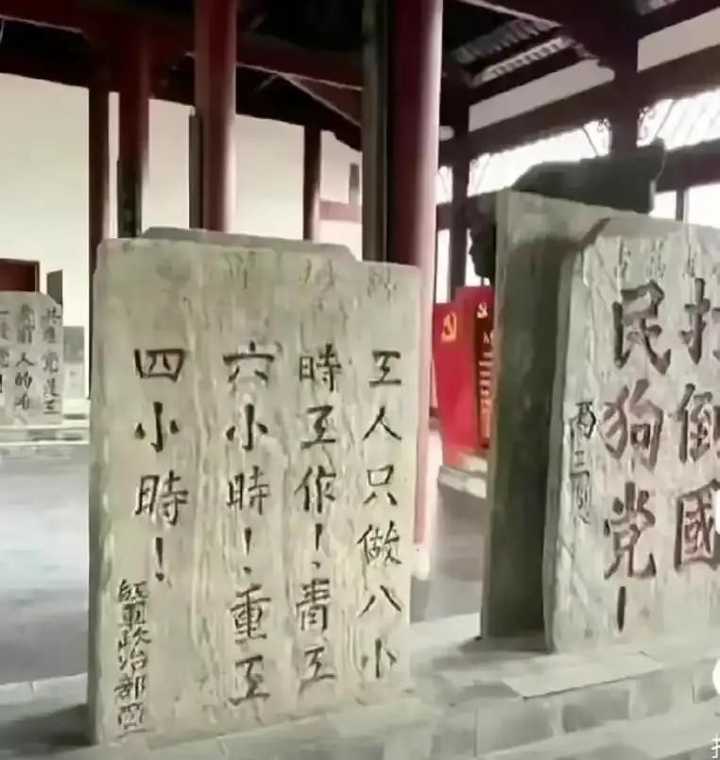 打倒國
民狗党！
工人只做八小
時工作！青工
六小時！重工
四小時！
紅軍政治部
共產党是
人的